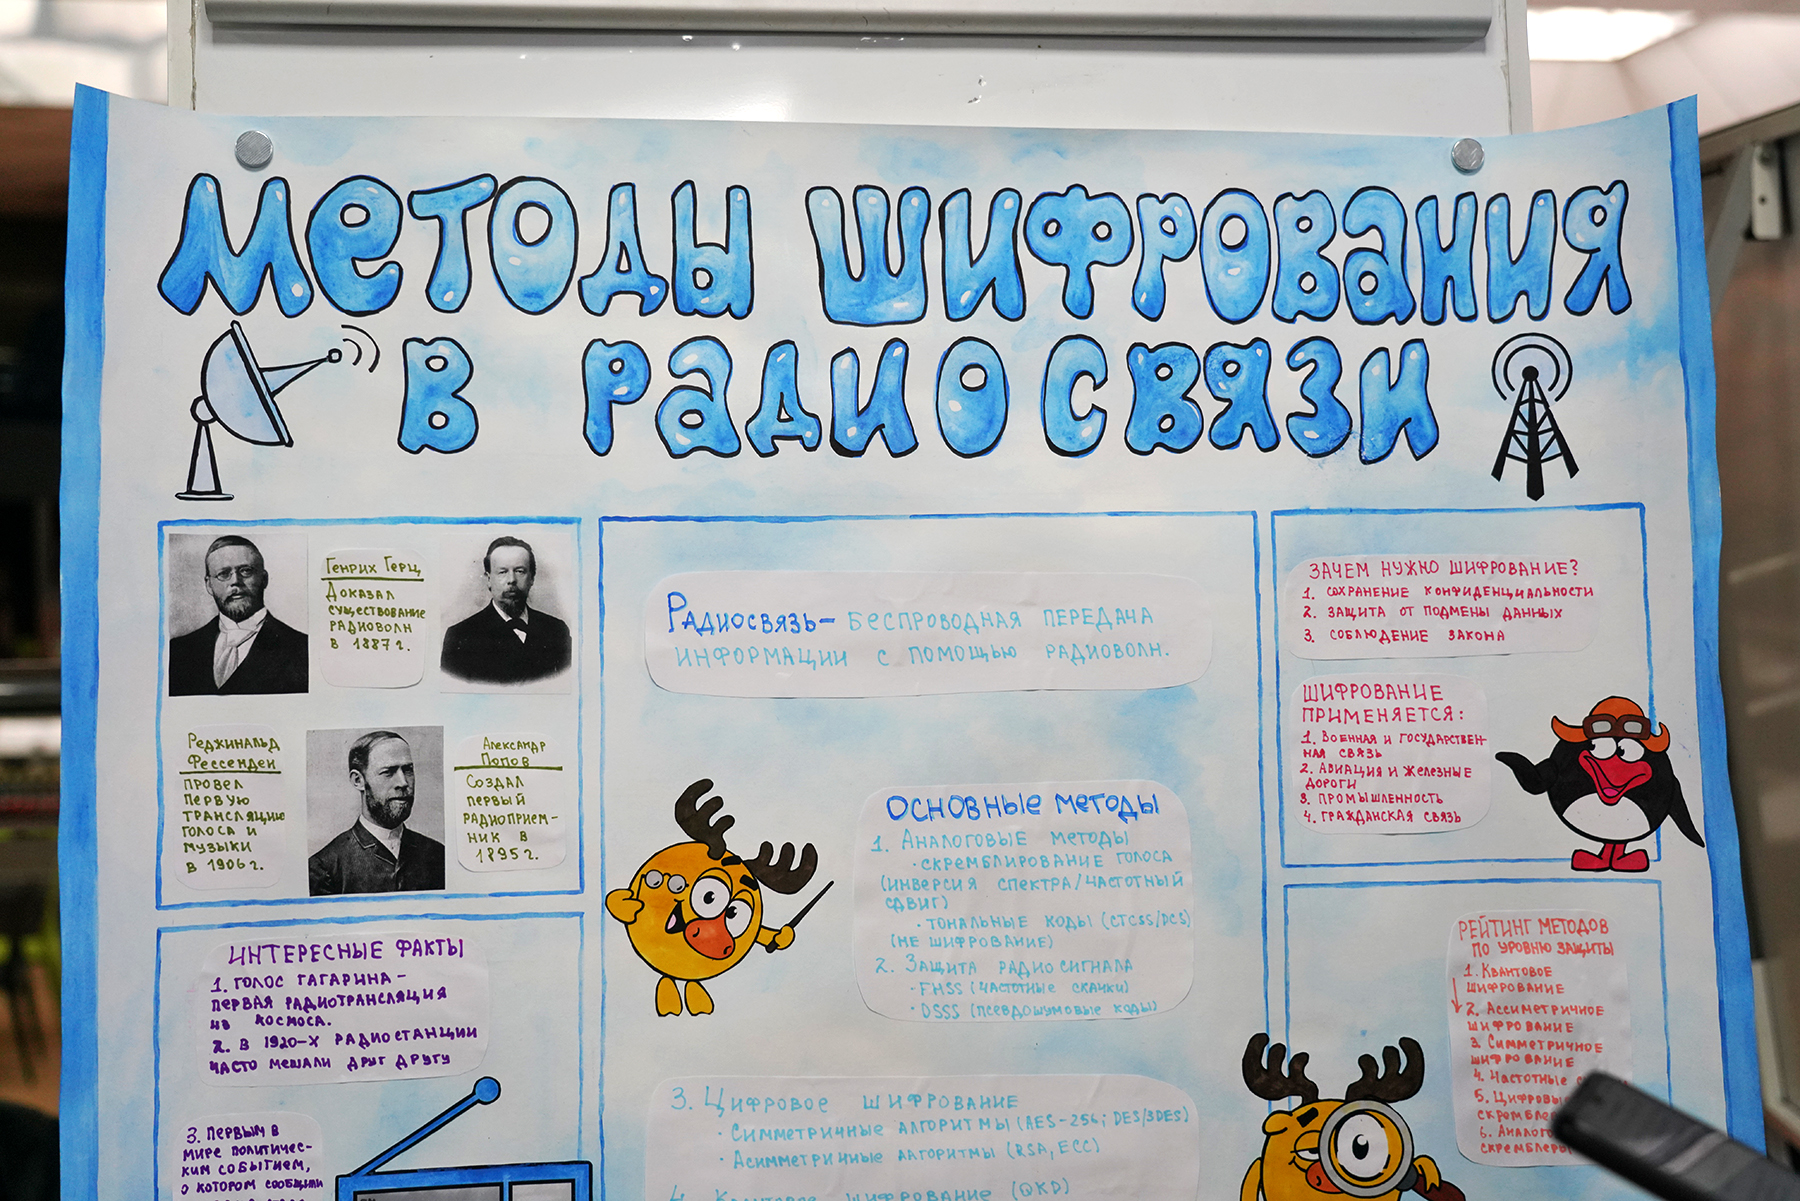 Методы шифрования
в радиосвязи
Генрих Герц
Доказал
существование
радиоволн
в 1887г.
Реджинальд
Фессенден
провел
первую
трансляцию
голоса и
музыки
в 1906г.
Александр
Попов
Создал
первый
радиоприем-
ник в
1895г.
Интересные факты
1. Голос Гагарина –
первая радиотрансляция
из космоса.
2. В 1920-х радиостанции
часто мешали друг другу
3. Первым в
мире политичес-
ким событием,
о котором сообщили
Радиосвязь – беспроводная передача
информации с помощью радиоволн.
Основные методы
1. Аналоговые методы
· скремблирование голоса
(инверсия спектра/частотный
сдвиг)
· тональные коды (CTCSS/DCS)
(не шифрование)
2. Защита радиосигнала
· FHSS (частотные скачки)
· DSSS (псевдошумовые коды)
3. Цифровое шифрование
· Симметричные алгоритмы (AES-256; DES/3DES)
· Асимметричные алгоритмы (RSA, ECC)
4. Квантовое шифрование (QKD)
Зачем нужно шифрование?
1. сохранение конфиденциальности
2. защита от подмены данных
3. соблюдение закона
Шифрование
применяется:
1. Военная и государствен-
ная связь
2. Авиация и железные
дороги
3. Промышленность
4. Гражданская связь
Рейтинг методов
по уровню защиты
1. Квантовое
шифрование
2. Ассиметричное
шифрование
3. Симметричное
шифрование
4. Частотные
5. Цифровы
скрембле
6. Аналого
скремблеры